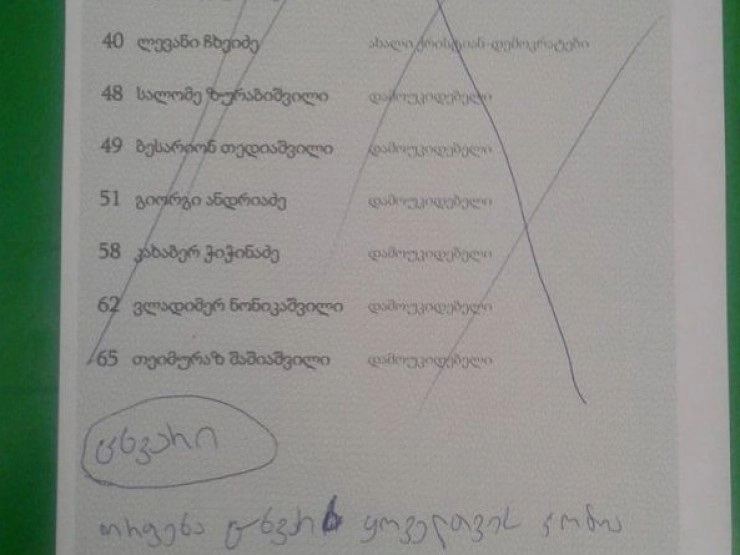 40 ლევანი ჩხეიძე ახალი ქრისტიან-დემოკრატები
48 სალომე ზურაბიშვილი დამოუკიდებელი
49 ბესარიონ თედიაშვილი დამოუკიდებელი
51 გიორგი ანდრიაძე დამოუკიდებელი
58 კახაბერ ჭიჭინაძე დამოუკიდებელი
62 ვლადიმერ ნონიკაშვილი დამოუკიდებელი
65 თეიმურაზ შაშიაშვილი დამოუკიდებელი
ცხვარი
ცხვარს ყოველთვის